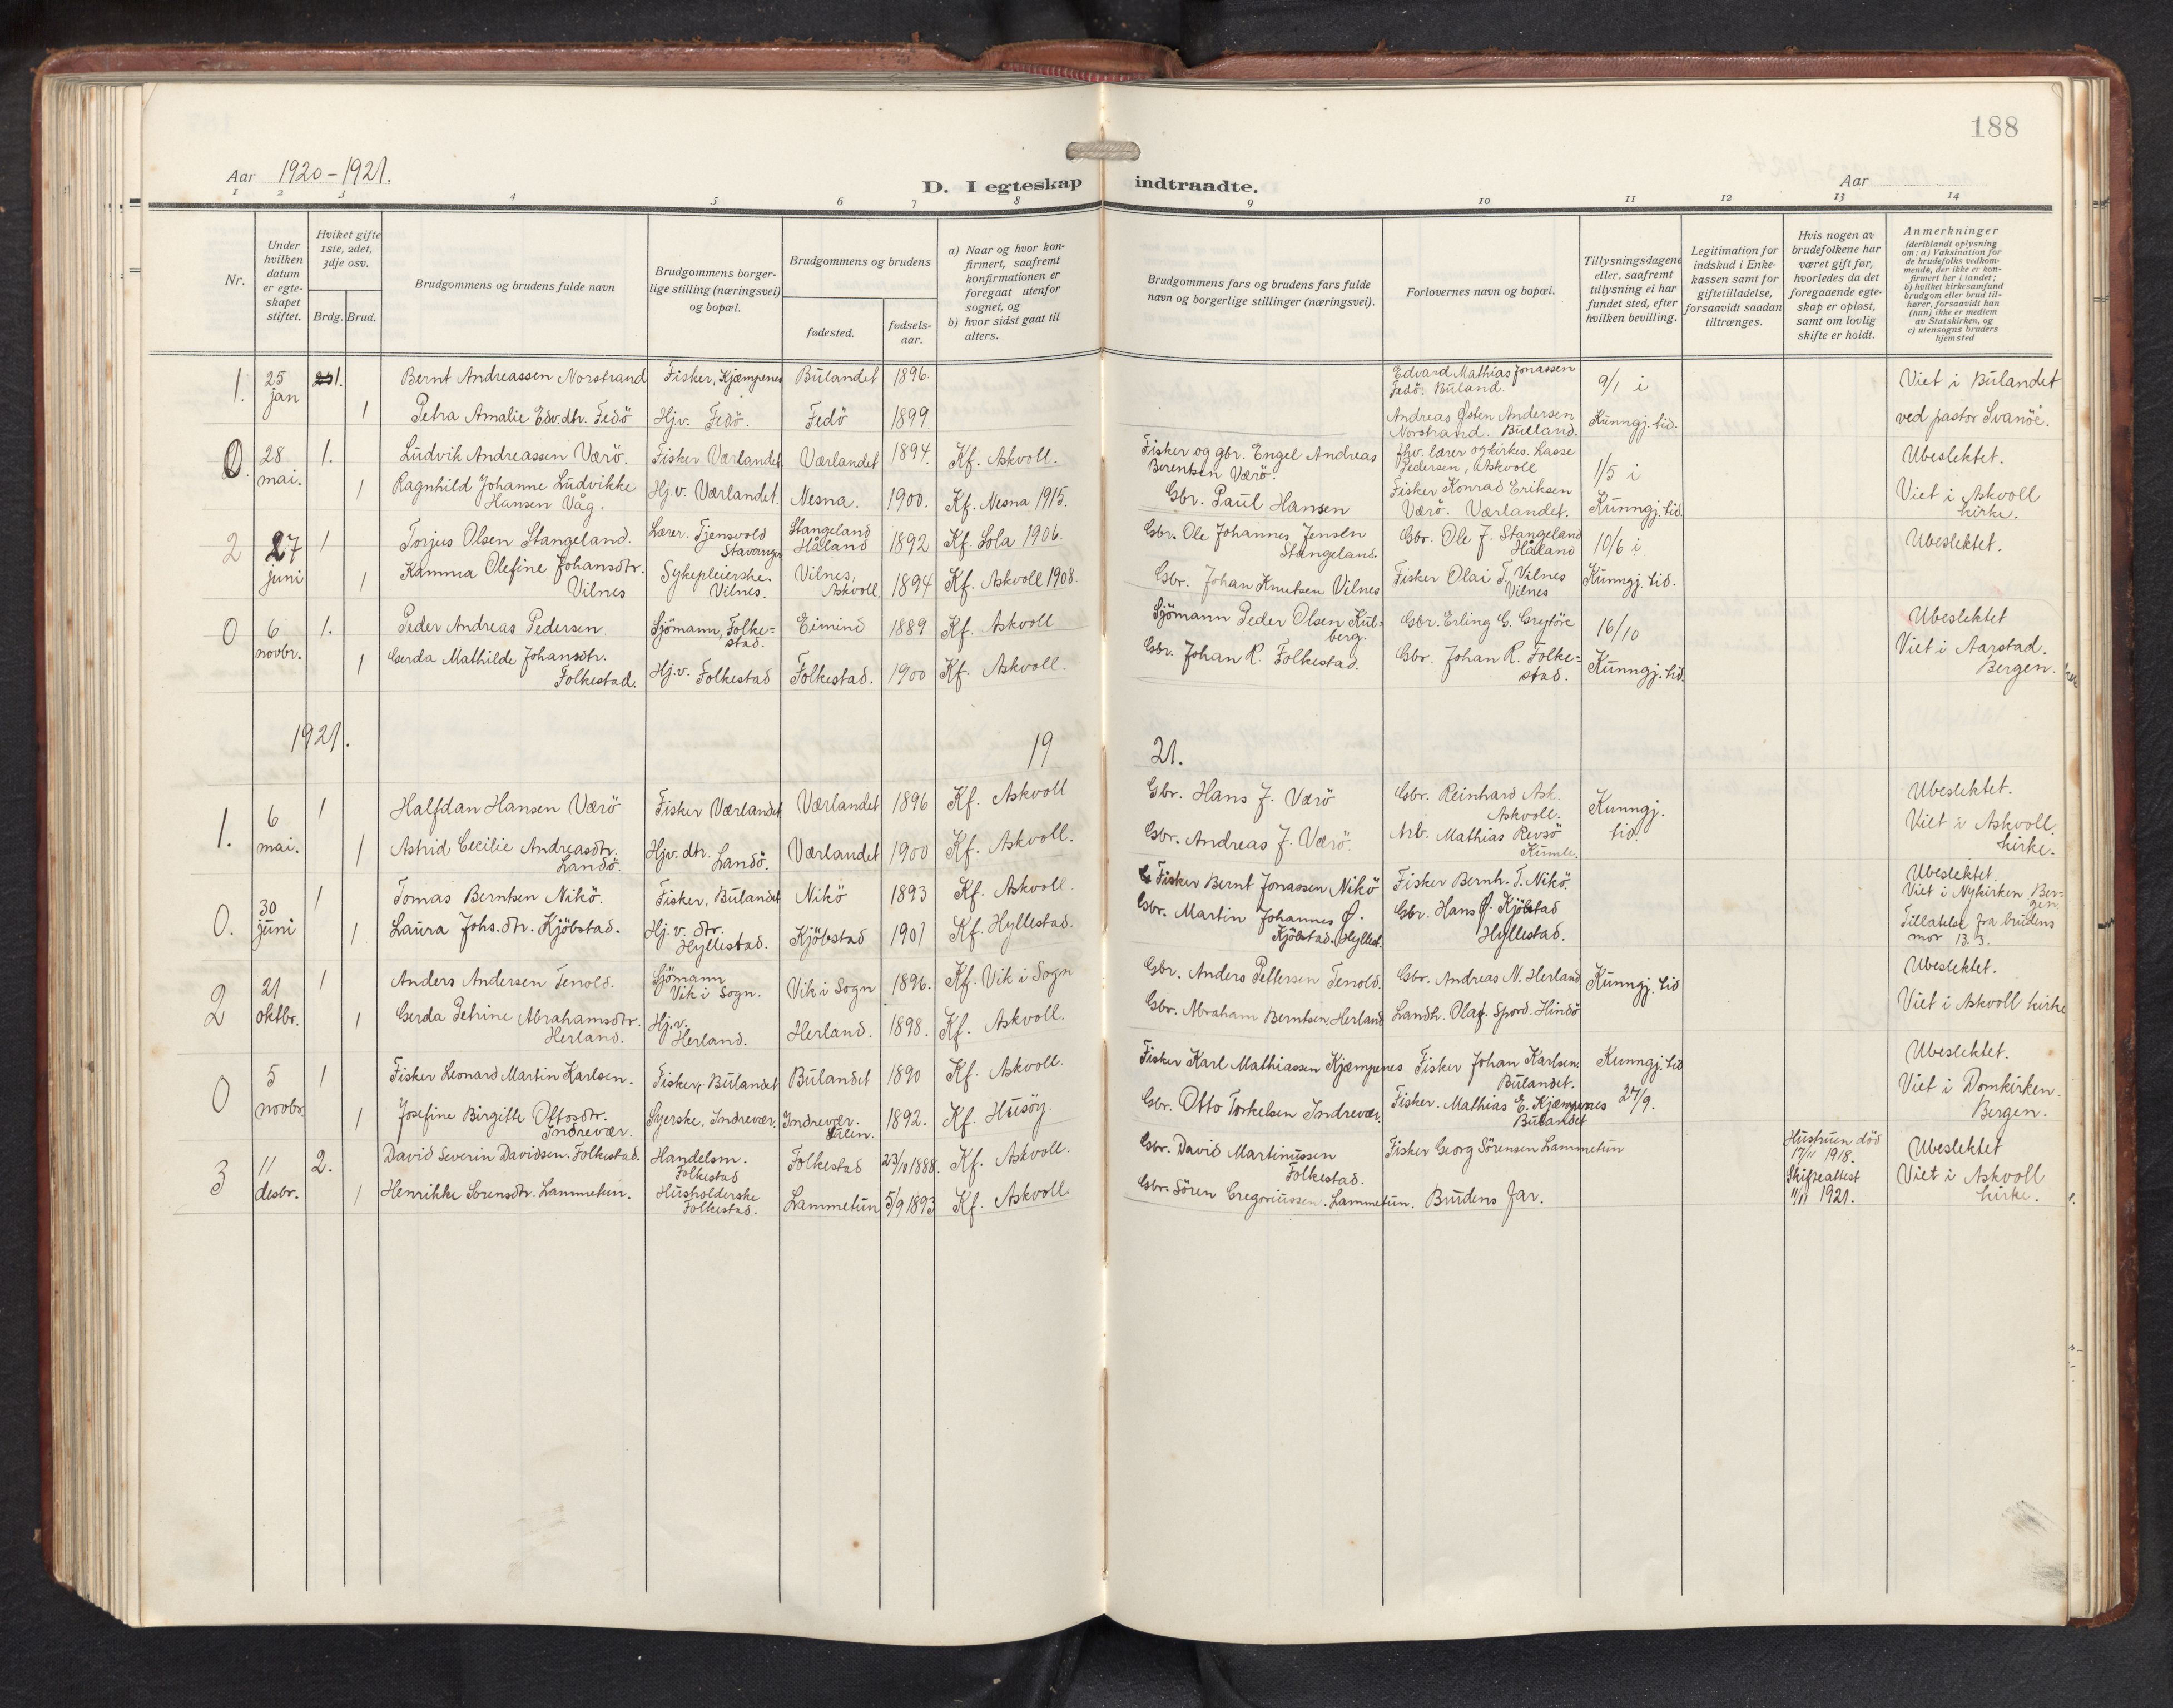 188
Aar 1920-1921.
D. I egteskap indtraadte.
Aar
1 2 3 4 5 6 7 8 9 10 11 12 13 14
Nr.
Under hvilken datum er egteskapet stiftet.
Hviket gifte 1ste, 2det, 3dje osv.
Brdg. Brud.
Brudgommens og brudens fulde navn
Brudgommens borgerlige stilling (næringsvei) og bopæl.
Brudgommens og brudens
fødested.
fødselsaar.
a) Naar og hvor konfirmert, saafremt konfirmationen er foregaat utenfor sognet, og
b) hvor sidst gaat til alters.
Brudgommens fars og brudens fars fulde navn og borgerlige stillinger (næringsvei).
Forlovernes navn og bopæl.
Tillysningsdagene eller, saafremt tillysning ei har fundet sted, efter hvilken bevilling.
Legitimation for indskud i Enkekassen samt for giftetilladelse, forsaavidt saadan tiltrænges.
Hvis nogen av brudefolkene har været gift før, hvorledes da det foregaaende egteskap er opløst, samt om lovlig skifte er holdt.
Anmerkninger
(deriblandt oplysning om: a) Vaksination for de brudefolks vedkommende, der ikke er konfirmert her i landet; b) hvilket kirkesamfund brudgom eller brud tilhører, forsaavidt han (hun) ikke er medlem av Statskirken, og c) utensogns bruders hjemsted
1. 25 jan 1. Bernt Andreassen Norstrand Fisker, Kjæmpenes Bulandet 1896. Edvard Mathias Jonassen Fedö. Buland. 9/1 i Viet i Bulandet
1 Petra Amalie Edv.dtr. Fedö Hj.v. Fedö. Fedö 1899. Andreas Østen Andersen Norstrand. Bulland. Kunngj. tid. ved pastor Svanöe.
0. 28 mai. 1. Ludvik Andreassen Værö. Fisker Værlandet Værlandet 1894. Kf. Askvoll. Fisker og gbr. Engel Andreas Berentsen Værö. fhv. lærer og kirkes. Lasse Pedersen, Askvoll 1/5 i Ubeslektet.
1 Ragnhild Johanne Ludvikke Hansen Våg. Hj.v. Værlandet. Nesna. 1900. Kf. Nesna 1915. Gbr. Paul Hansen Fisker Konrad Eriksen Værö. Værlandet. Kunngj. tid. Viet i Askvoll kirke.
2 27 juni 1 Torjus Olsen Stangeland. Lærer. Tjensvold Stavanger Stangeland Håland 1892 Kf. Sola 1906. Gbr. Ole Johannes Jensen Stangeland. Gbr. Ole J. Stangeland Håland 10/6 i Ubeslektet.
1 Kamma Olefine Johansdtr. Vilnes Sykepleierske. Vilnes. Vilnes, Askvoll. 1894 Kf. Askvoll 1908. Gbr. Johan Knutsen Vilnes Fisker Olai T. Vilnes Vilnes Kunngj. tid.
0 6 novbr. 1. Peder Andreas Pedersen. Sjömann, Folkestad. Eimind 1889 Kf. Askvoll Sjömann Peder Olsen Kulberg. Gbr. Erling G. Grepföre 16/10 Ubeslektet
1 Gerda Mathilde Johansdtr. Folkestad. Hj.v. Folkestad Folkestad. 1900 Kf. Askvoll. Gbr. Johan R. Folkestad. Gbr. Johan R. Folkestad. Kunngj. tid. Viet i Aarstad. Bergen.
1921. 19 21.
1. 6 mai. 1 Halfdan Hansen Værö Fisker Værlandet Værlandet 1896 Kf. Askvoll Gbr. Hans J. Værö Gbr. Reinhard Ask. Askvoll. Kunngj. tid. Ubeslektet.
1 Astrid Cecilie Andreasdtr. Landö. Hjv. dtr. Landö. Værlandet 1900 Kf. Askvoll. Gbr. Andreas J. Værö. Arb. Mathias Revsö Kumle. Viet i Askvoll kirke.
0. 30 juni 1 Tomas Berntsen Nikö. Fisker, Bulandet Nikö 1893 Kf. Askvoll. Fisker Bernt Jonassen Nikö Fisker Bernh. T. Nikö. Ubeslektet. Viet i Nykirken Bergen.
1 Laura Johs.dtr. Kjöbstad. Hj.v. dtr. Hyllestad. Kjöbstad 1901 Kf. Hyllestad. Gbr. Martin Johannes Ø. Kjöbstad. Hyllest. Gbr. Hans Ø. Kjöbstad Hyllestad. Tillatelse fra brudens mor 13.3.
2 21 oktbr. 1 Anders Andersen Tenold. Sjömann Vik i Sogn. Vik i Sogn 1896. Kf. Vik i Sogn Gbr. Anders Pettersen Tenold. Gbr. Andreas N. Herland Kunngj. tid Ubeslektet.
1 Gerda Petrine Abrahamsdtr. Herland. Hj.v. Herland. Herland. 1898. Kf. Askvoll. Gbr. Abraham Berntsen Herland Landh. Olaf. Spord. Hindö Viet i Askvoll kirke
0 5 novbr. 1 Fisker Leonard Martin Karlsen. Fisker, Bulandet Bulandet 1890 Kf. Askvoll. Fisker Karl Mathiassen Kjæmpenes Fisker Johan Karlsen Bulandet. Kunngj. tid Ubeslektet.
1 Josefine Birgitte Ottosdtr. Indrevær. Syerske, Indrevær. Indrevær. Sulen. 1892. Kf. Husöy. Gbr. Otto Torkelsen Indrevær. Fisker. Mathias E. Kjæmpenes Bulandet 27/9. Viet i Domkirken. Bergen.
3 11 desbr. 2. David Severin Davidsen. Folkestad. Handelsm. Folkestad Folkestad 23/10 1888. Kf. Askvoll. Gbr. David Martinussen Folkestad. Fisker Georg Sörensen Lammetun Hustruen död 17/11 1918. Ubeslektet
1 Henrikke Sorensdtr. Lammetun. Husholderske Folkestad. Lammetun 5/9 1893 Kf. Askvoll. Gbr. Sören Gregoriussen. Lammetun. Brudens far. Skifteattest 11/11 1921. Viet i Askvoll kirke.